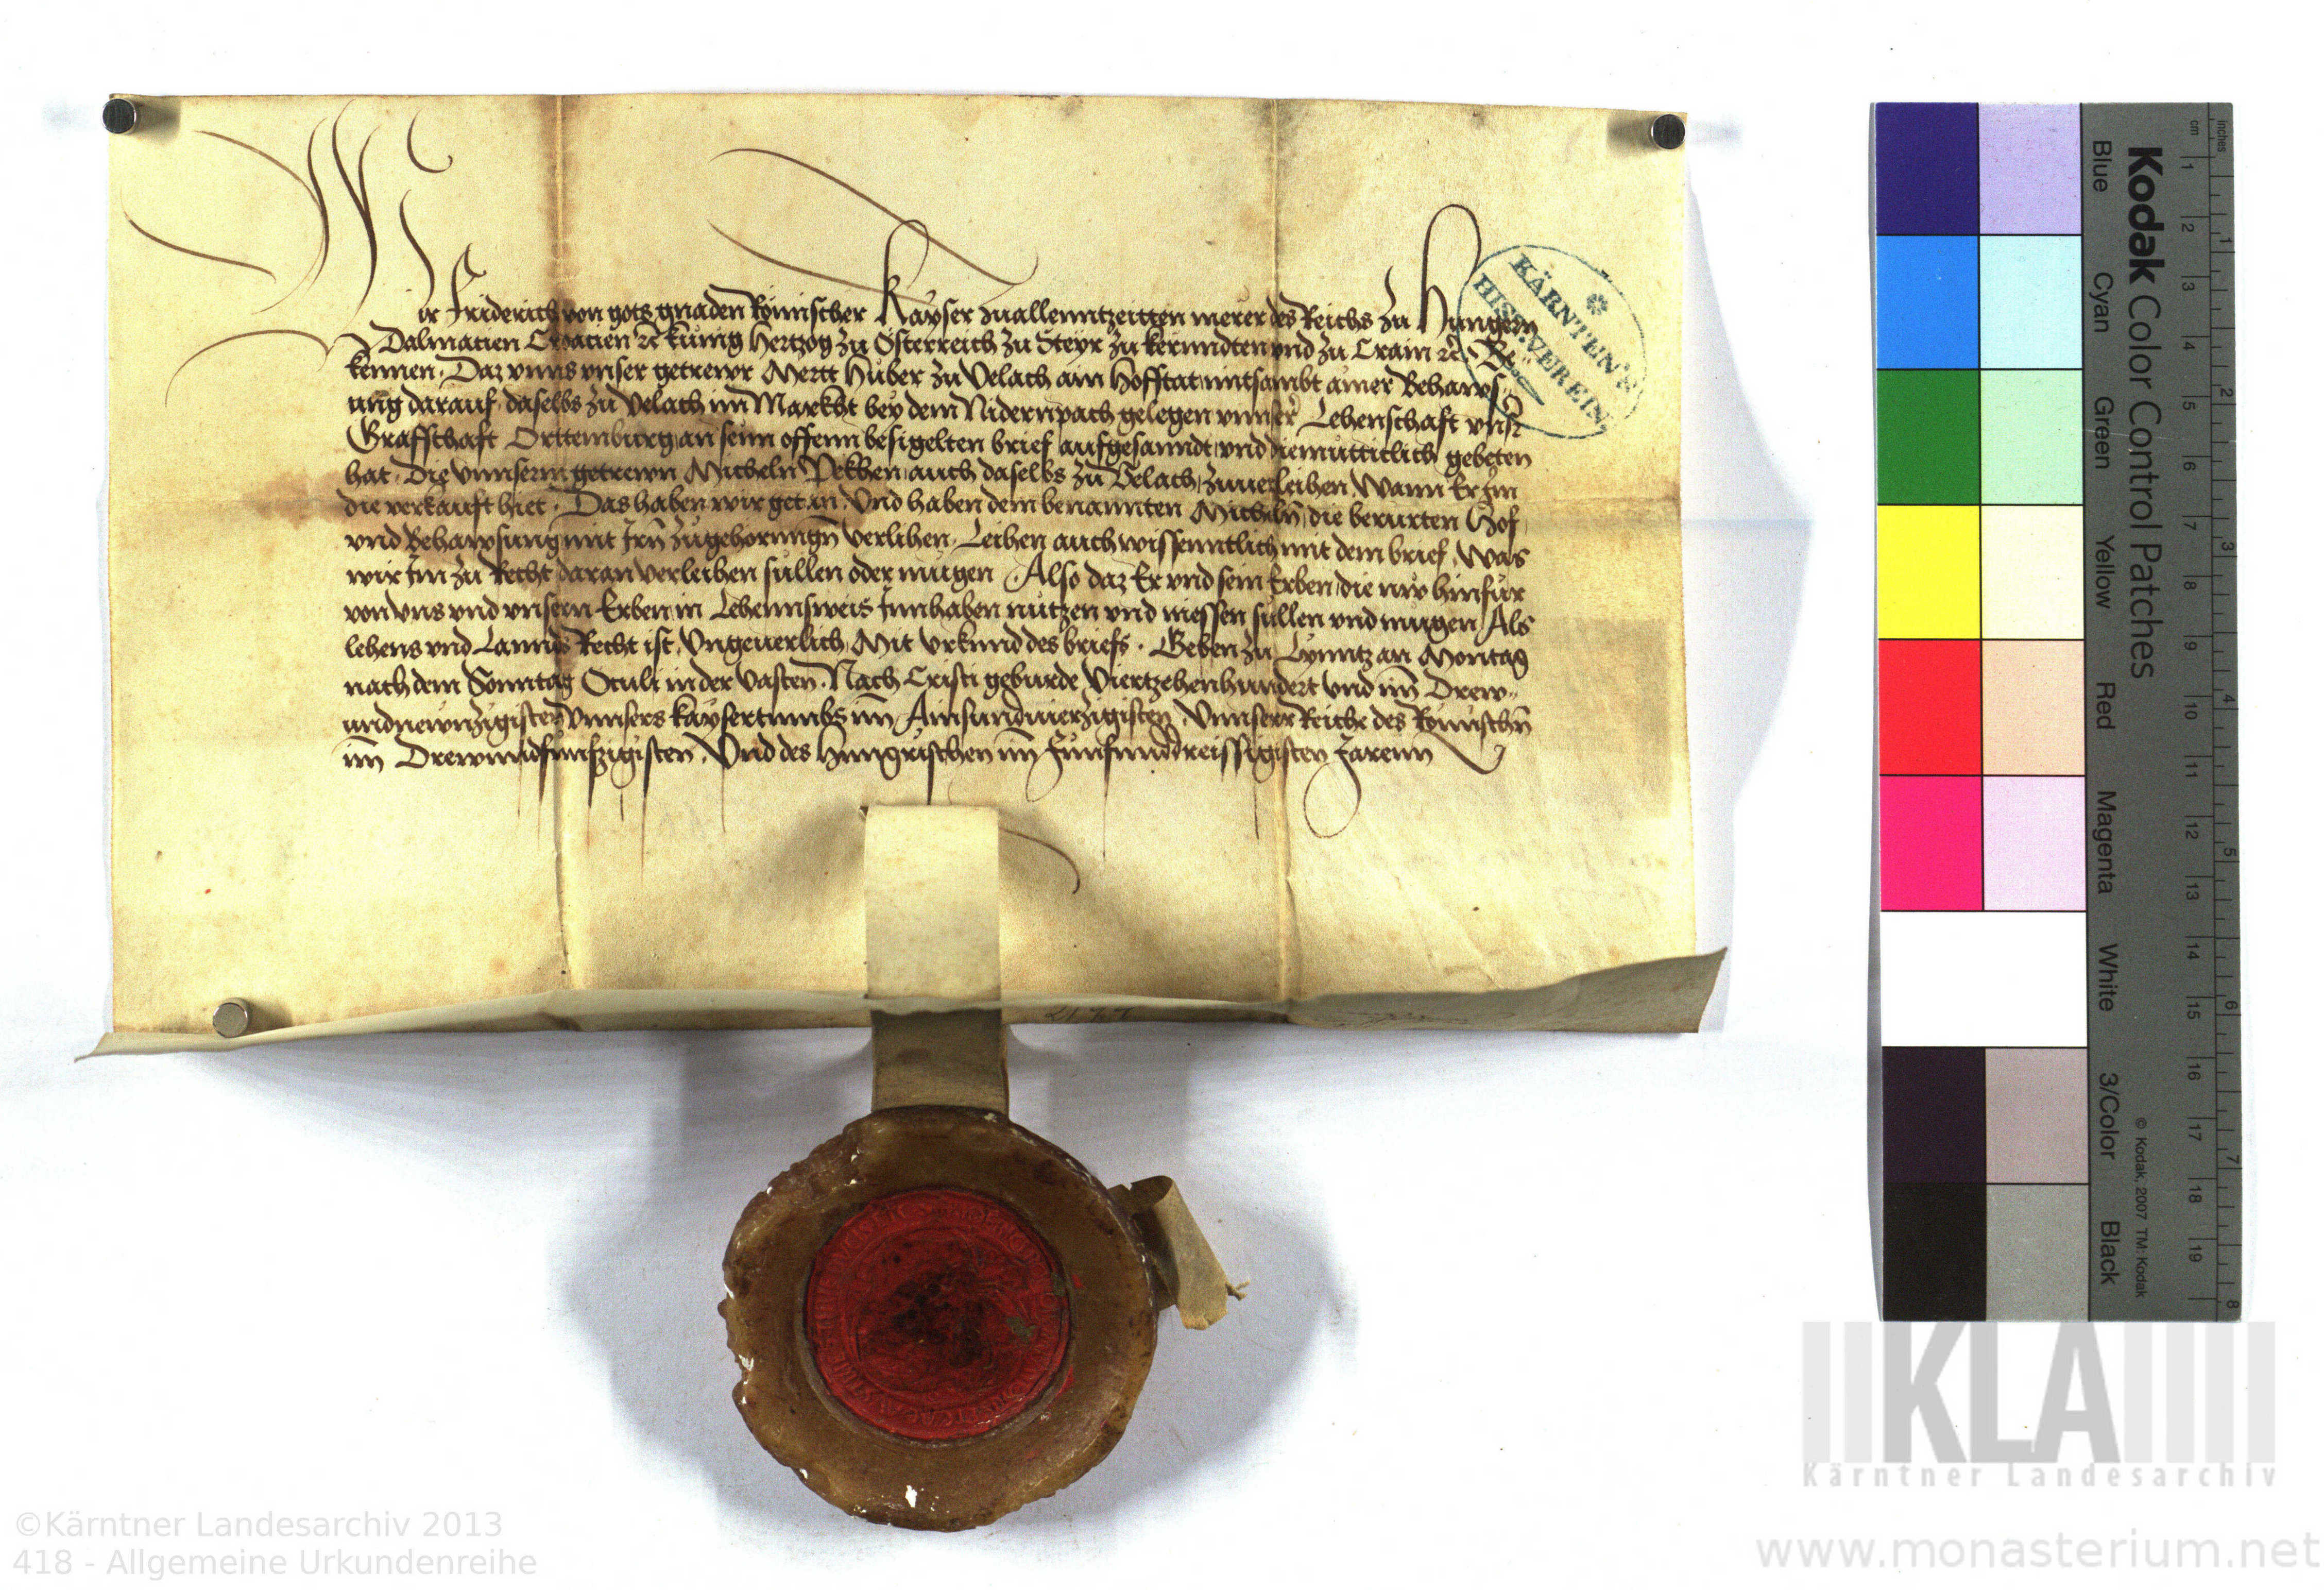 Wir Friderich von gots gnaden Römischer Kayser zuallenntzeitten merer des Reichs zu Hungern
Dalmatien Croatien ꝛc̄ kunig Hertzog zu Österreich zu Steyr zu kernndten vnd zu Crain ꝛc̄ Be⸗
kennen. Daz vnns vnser getrewr Mertt Huber zu Velach ain Hofstat mitsambt ainer Behaws⸗
ung darauf daselbs zu Velach im Markht bey dem Nidernpach gelegen vnnser̄ Lehenschaft vnsr̄
Graffschaft Orttemburg an seim offenn besigelten brief aufgesanndt vnd diemutticlich gebeten
hat. Die vnnserm getrewn Micheln Pekhen auch daselbs zu Velach zuuerleihen. Wann Er Im
die verkauft hiet. Das haben wir getan. Vnd haben dem benannten Micheln̄ die berurten Hof
vnd Behawsung mit Irn̄ zugehorungn̄ Verlihen. Leihen auch wissenntlich mit dem brief. Was
wir Im zu Recht daran verleihen sullen oder mugen Also daz Er vnd sein Erben die nw hinfur
von vns vnd vnsern Erben in Lehennsweis Innhaben nutzen vnd niessen sullen vnd mugen Als
lehens vnd Lannds Recht ist. Vngeuerlich Mit vrkund des briefs. Geben zu Lynntz an Montag
nach dem Sonntag Oculi in der Vasten. Nach Cristi geburde Viertzehenhundert vnd im̄ Drew⸗
undnewnzigisten Vnnsers kaysertumbs im̄ Ainsundvierzigisten. Vnnserr Reiche des Römischn̄
im̄ Drewundfunfzigisten. Vnd des Hungrischen im̄ Funfunddreissigisten Jarenn
KÄRNTEN'S
HIST. VEREIN
Kodak Color Control Patches
Blue Cyan Green Yellow Red Magenta White 3/Color Black
© Kodak, 2007 TM: Kodak
inches
1 2 3 4 5 6 7 8
cm
1 2 3 4 5 6 7 8 9 10 11 12 13 14 15 16 17 18 19
KLA
Kärntner Landesarchiv
©Kärntner Landesarchiv 2013
418 - Allgemeine Urkundenreihe
www.monasterium.net